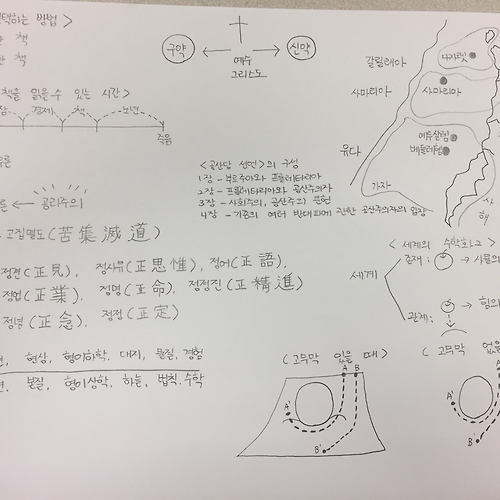 택하는 방법 >
책
책
책을 읽을 수 있는 시간 >
잠 경제 책 노년
죽음
공리주의
고집멸도 (苦集滅道)
정견 (正見), 정사유 (正思惟), 정어 (正語),
정업 (正業), 정명 (正命), 정정진 (正精進)
정념 (正念), 정정 (正定)
현상, 형이하학, 대지, 물질, 경험
본질, 형이상학, 하늘, 법칙, 수학
구약
예수
그리스도
신약
갈릴래아
나자렛
사마리아
사마리아
유다
예루살렘
베들레헴
가자
사해
<공산당 선언>의 구성
1장 - 부르주아와 프롤레타리아
2장 - 프롤레타리아와 공산주의자
3장 - 사회주의, 공산주의 문헌
4장 - 기존의 여러 반대파에 관한 공산주의자의 입장
< 세계의 수학화 2 >
세계
존재 :
→ 사물의
관계 :
→ 힘의
( 고무막 있을 때 )
A B
A'
B'
( 고무막 없을
A'
B'